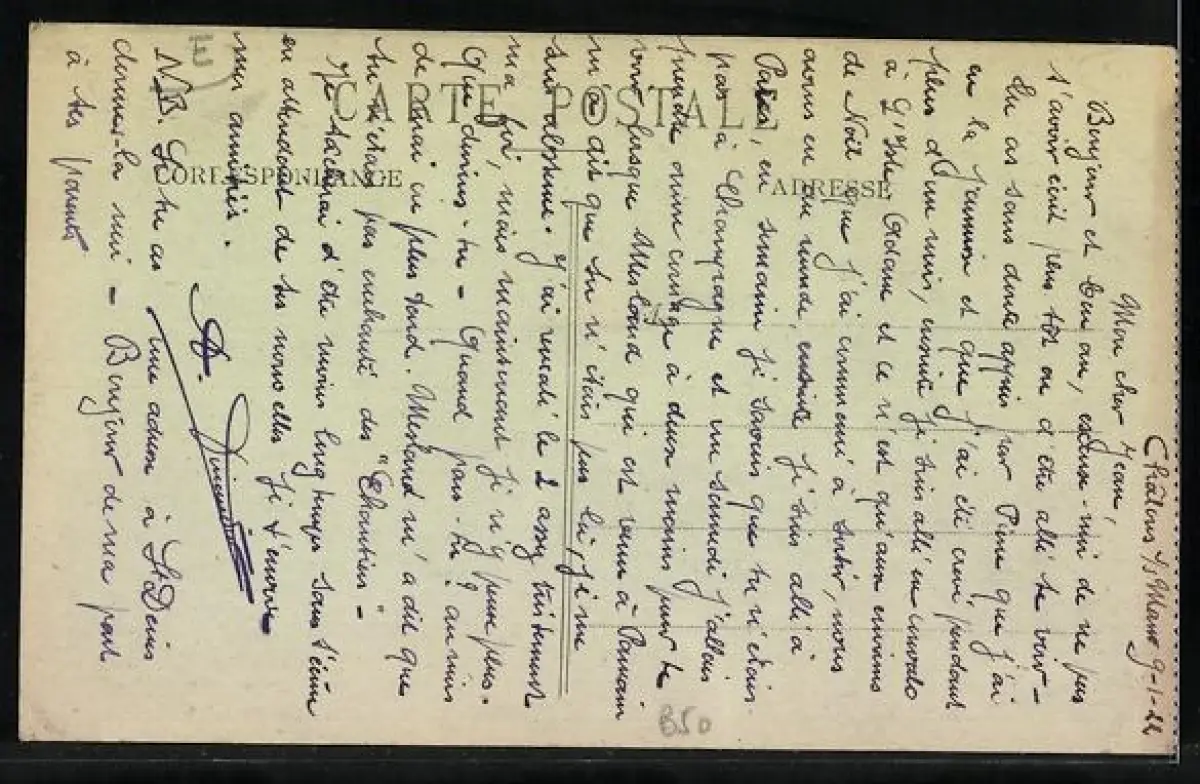 Châlons s/ Marne 9-1-22
Mon cher Jean,
Bonjour et bon an, excuse-moi de ne pas
t'avoir écrit plus tôt ou d'être allé te voir -
Tu as sans doute appris par Pierre que j'ai
eu la jaunisse et que j'ai été crevé pendant
plus d'un mois, ensuite je suis allé en convalo
à L'Isle Adam et ce n'est qu'aux environs
de Noël que j'ai commencé à sortir, nous
avons eu du monde, ensuite je suis allé à
Paris, en semaine je savais que tu n'étais
pas à Champagne et un samedi j'allais
prendre mon courage à deux mains pour te
voir lorsque Mesland qui est venu à Parmain
m'a dit que tu n'étais pas là, je me
suis abstenu. J'ai rendi le 2 assez tristement
ma foi, mais maintenant je n'y pense plus.
Que deviens-tu - Quand pars-tu ? au mois
de Mai ou plus tard. Mesland m'a dit que
tu n'étais pas enchanté des "Chantiers" -
Je tâcherai d'être moins longtemps sans t'écrire
en attendant de tes nouvelles je t'envoie
mes amitiés.
A.
NB. Si tu as une adresse à St Denis
donne-la moi - Bonjour de ma part
à tes parents
CARTE POSTALE
CORRESPONDANCE
ADRESSE
B50